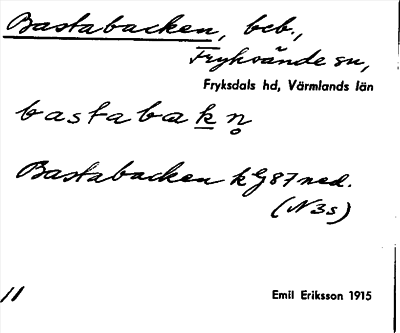 Bastabacken, beb.,
Fryksände sn,
Fryksdals hd, Värmlands län
bastabakn̥
Bastabacken kG 87 ned.
(N3s)
11
Emil Eriksson 1915